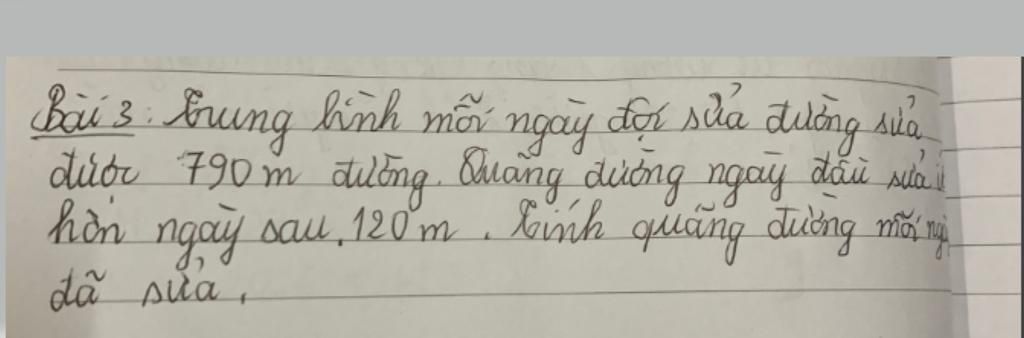 Bài 3: Trung bình mỗi ngày đội sửa đường sửa
được 790 m đường. Quãng đường ngày đầu sửa
hơn ngày sau 120 m. Tính quãng đường mỗi
đã sửa.